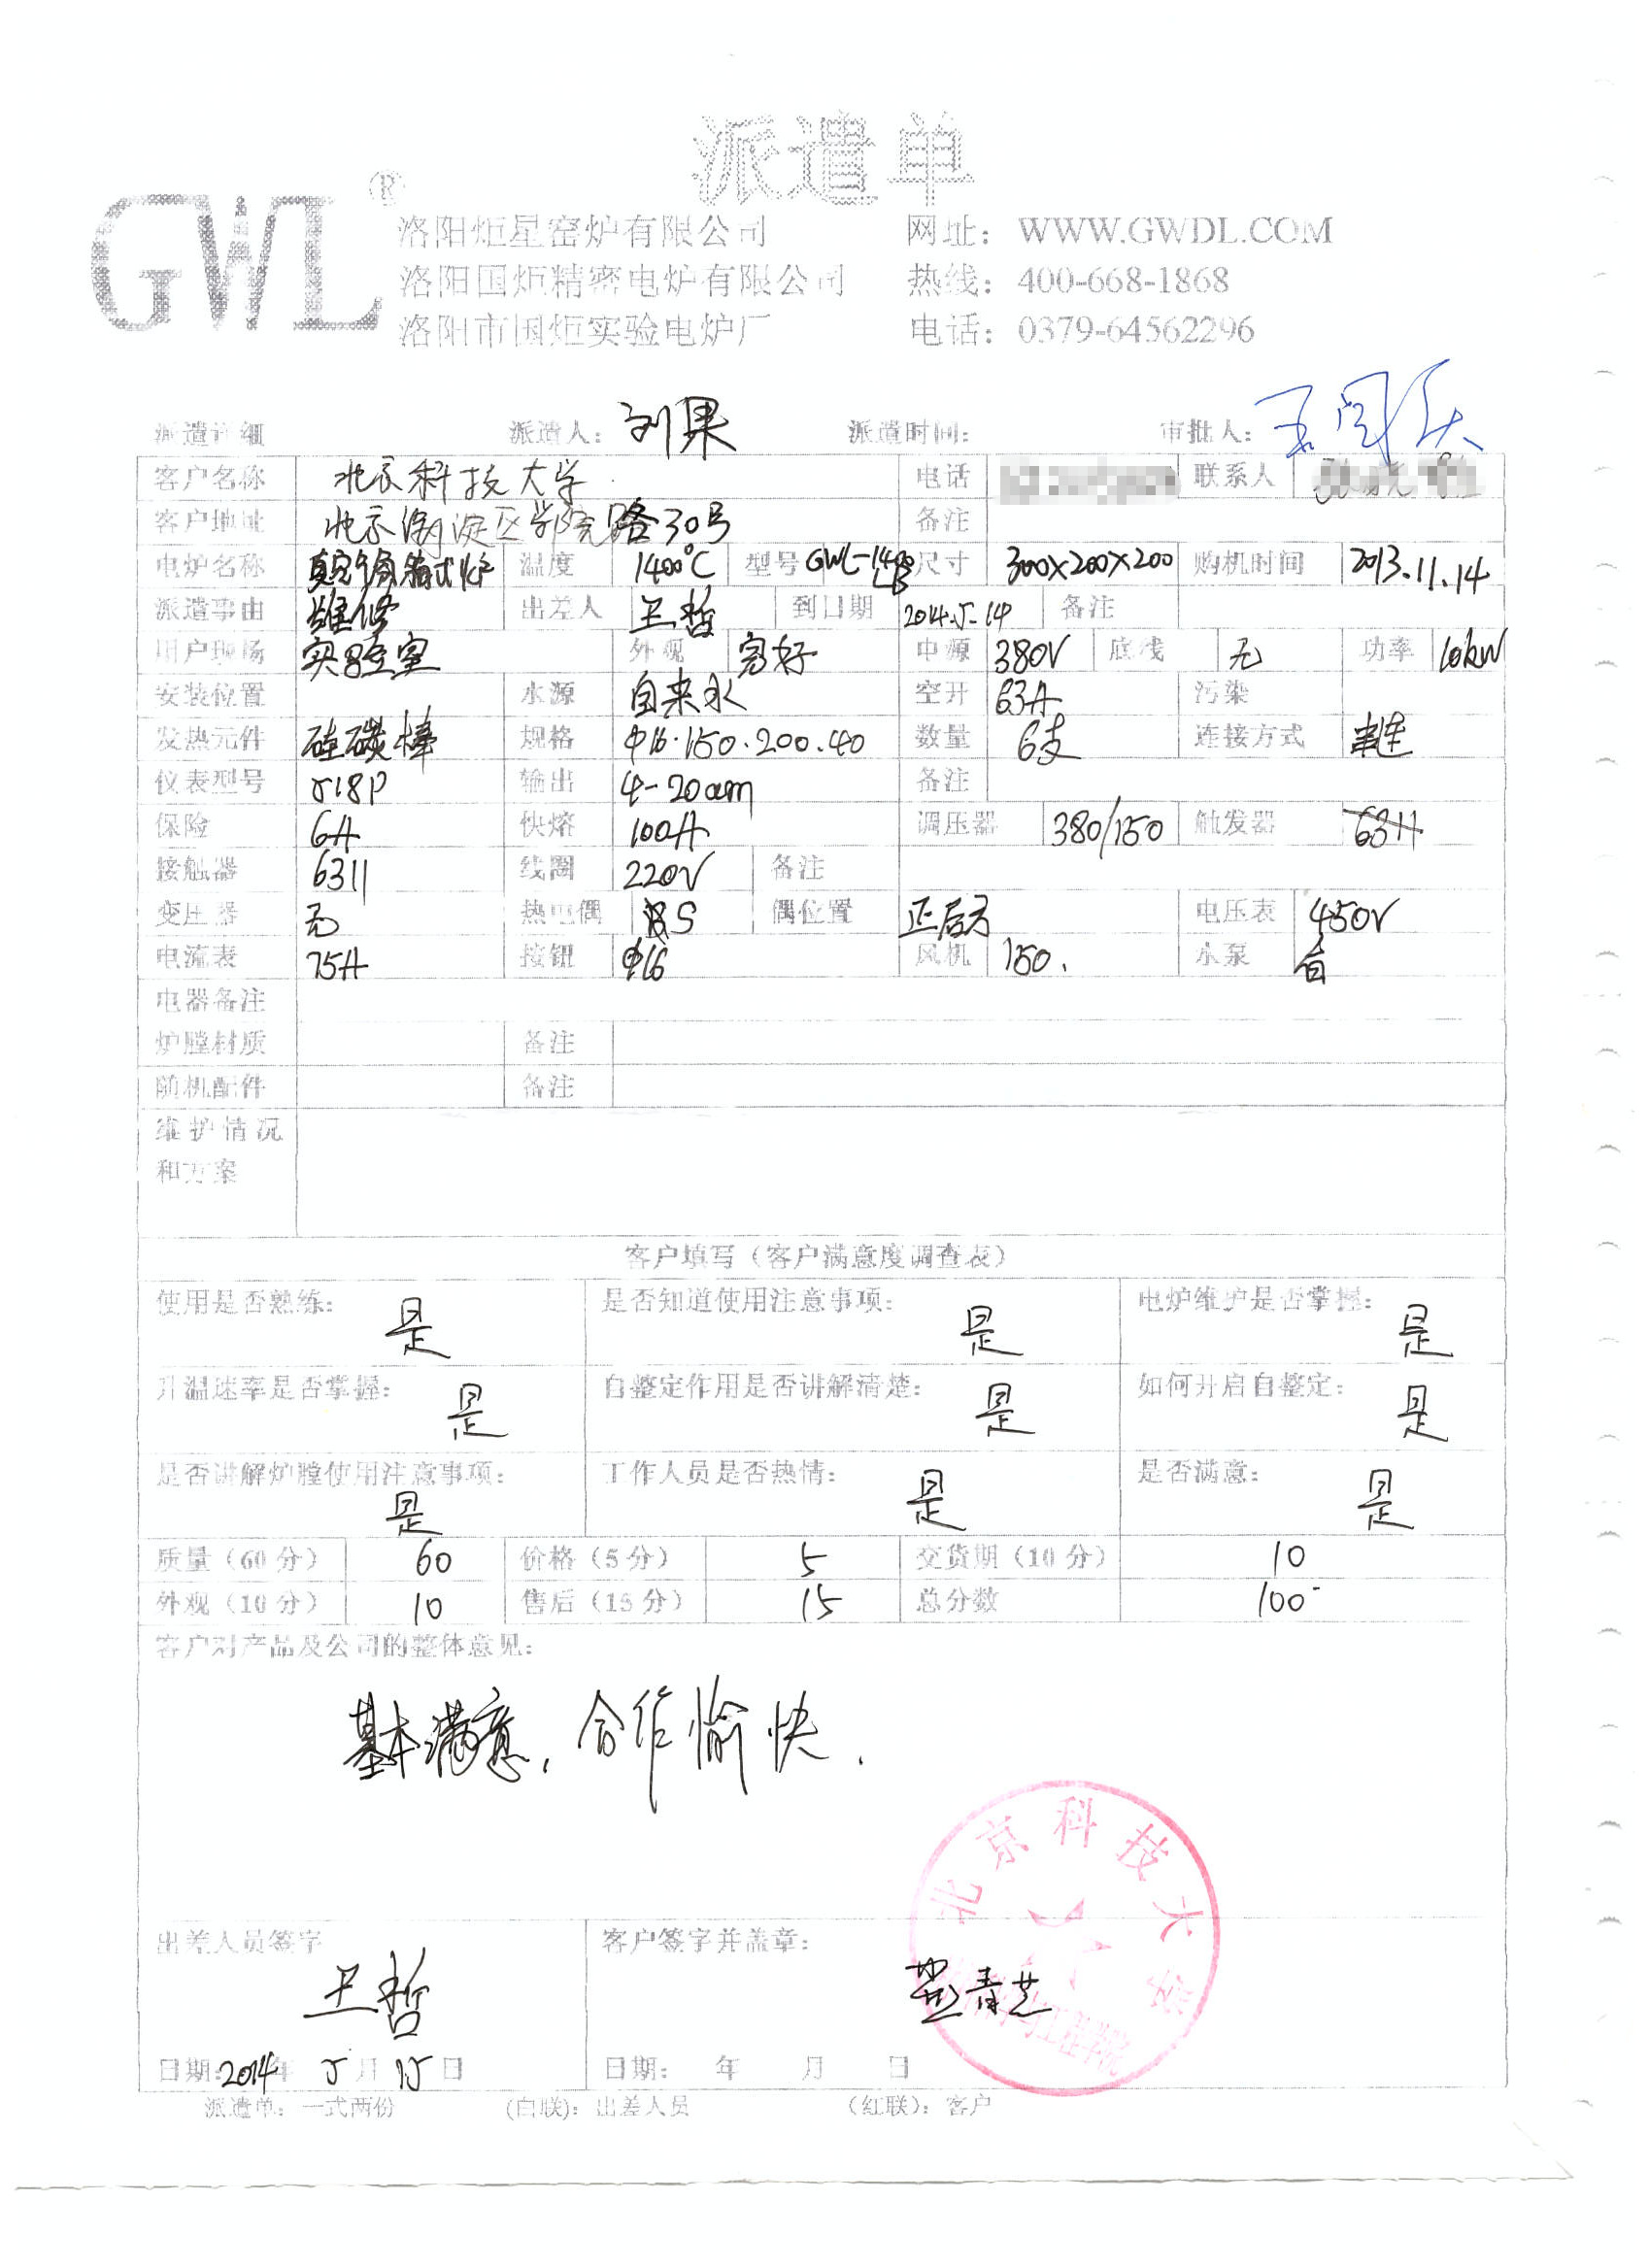 派遣单
GWL®
洛阳炬星窑炉有限公司 网址：WWW.GWDL.COM
洛阳国炬精密电炉有限公司 热线：400-668-1868
洛阳市国炬实验电炉厂 电话：0379-64562296
派遣详细 派遣人：刘果 派遣时间： 审批人：
客户名称 北京科技大学 电话 联系人
客户地址 北京海淀区学院路30号 备注
电炉名称 真空气氛箱式炉 温度 1400℃ 型号 GWL-1400 尺寸 300×200×200 购机时间 2013.11.14
派遣事由 维修 出差人 王哲 到日期 2014.5.14 备注
用户现场 实验室 外观 完好 电源 380V 底线 无 功率 10kW
安装位置 水源 自来水 空开 63A 污染
发热元件 硅碳棒 规格 Φ16·150·200·40 数量 6支 连接方式 串连
仪表型号 518P 输出 4-20am 备注
保险 6A 快熔 100A 调压器 380/150 触发器
接触器 6311 线圈 220V 备注
变压器 无 热电偶 S 偶位置 正后方 电压表 450V
电流表 75A 按钮 Φ16 风机 150. 水泵 自
电器备注
炉膛材质 备注
随机配件 备注
维护情况
和方案
客户填写（客户满意度调查表）
使用是否熟练：是 是否知道使用注意事项：是 电炉维护是否掌握：是
升温速率是否掌握：是 自整定作用是否讲解清楚：是 如何开启自整定：是
是否讲解炉膛使用注意事项：是 工作人员是否热情：是 是否满意：是
质量（60分） 60 价格（5分） 5 交货期（10分） 10
外观（10分） 10 售后（15分） 15 总分数 100
客户对产品及公司的整体意见：
基本满意，合作愉快．
北京科技大学
出差人员签字 客户签字并盖章：
王哲
日期：2014年5月15日 日期： 年 月 日
派遣单：一式两份 （白联）：出差人员 （红联）：客户